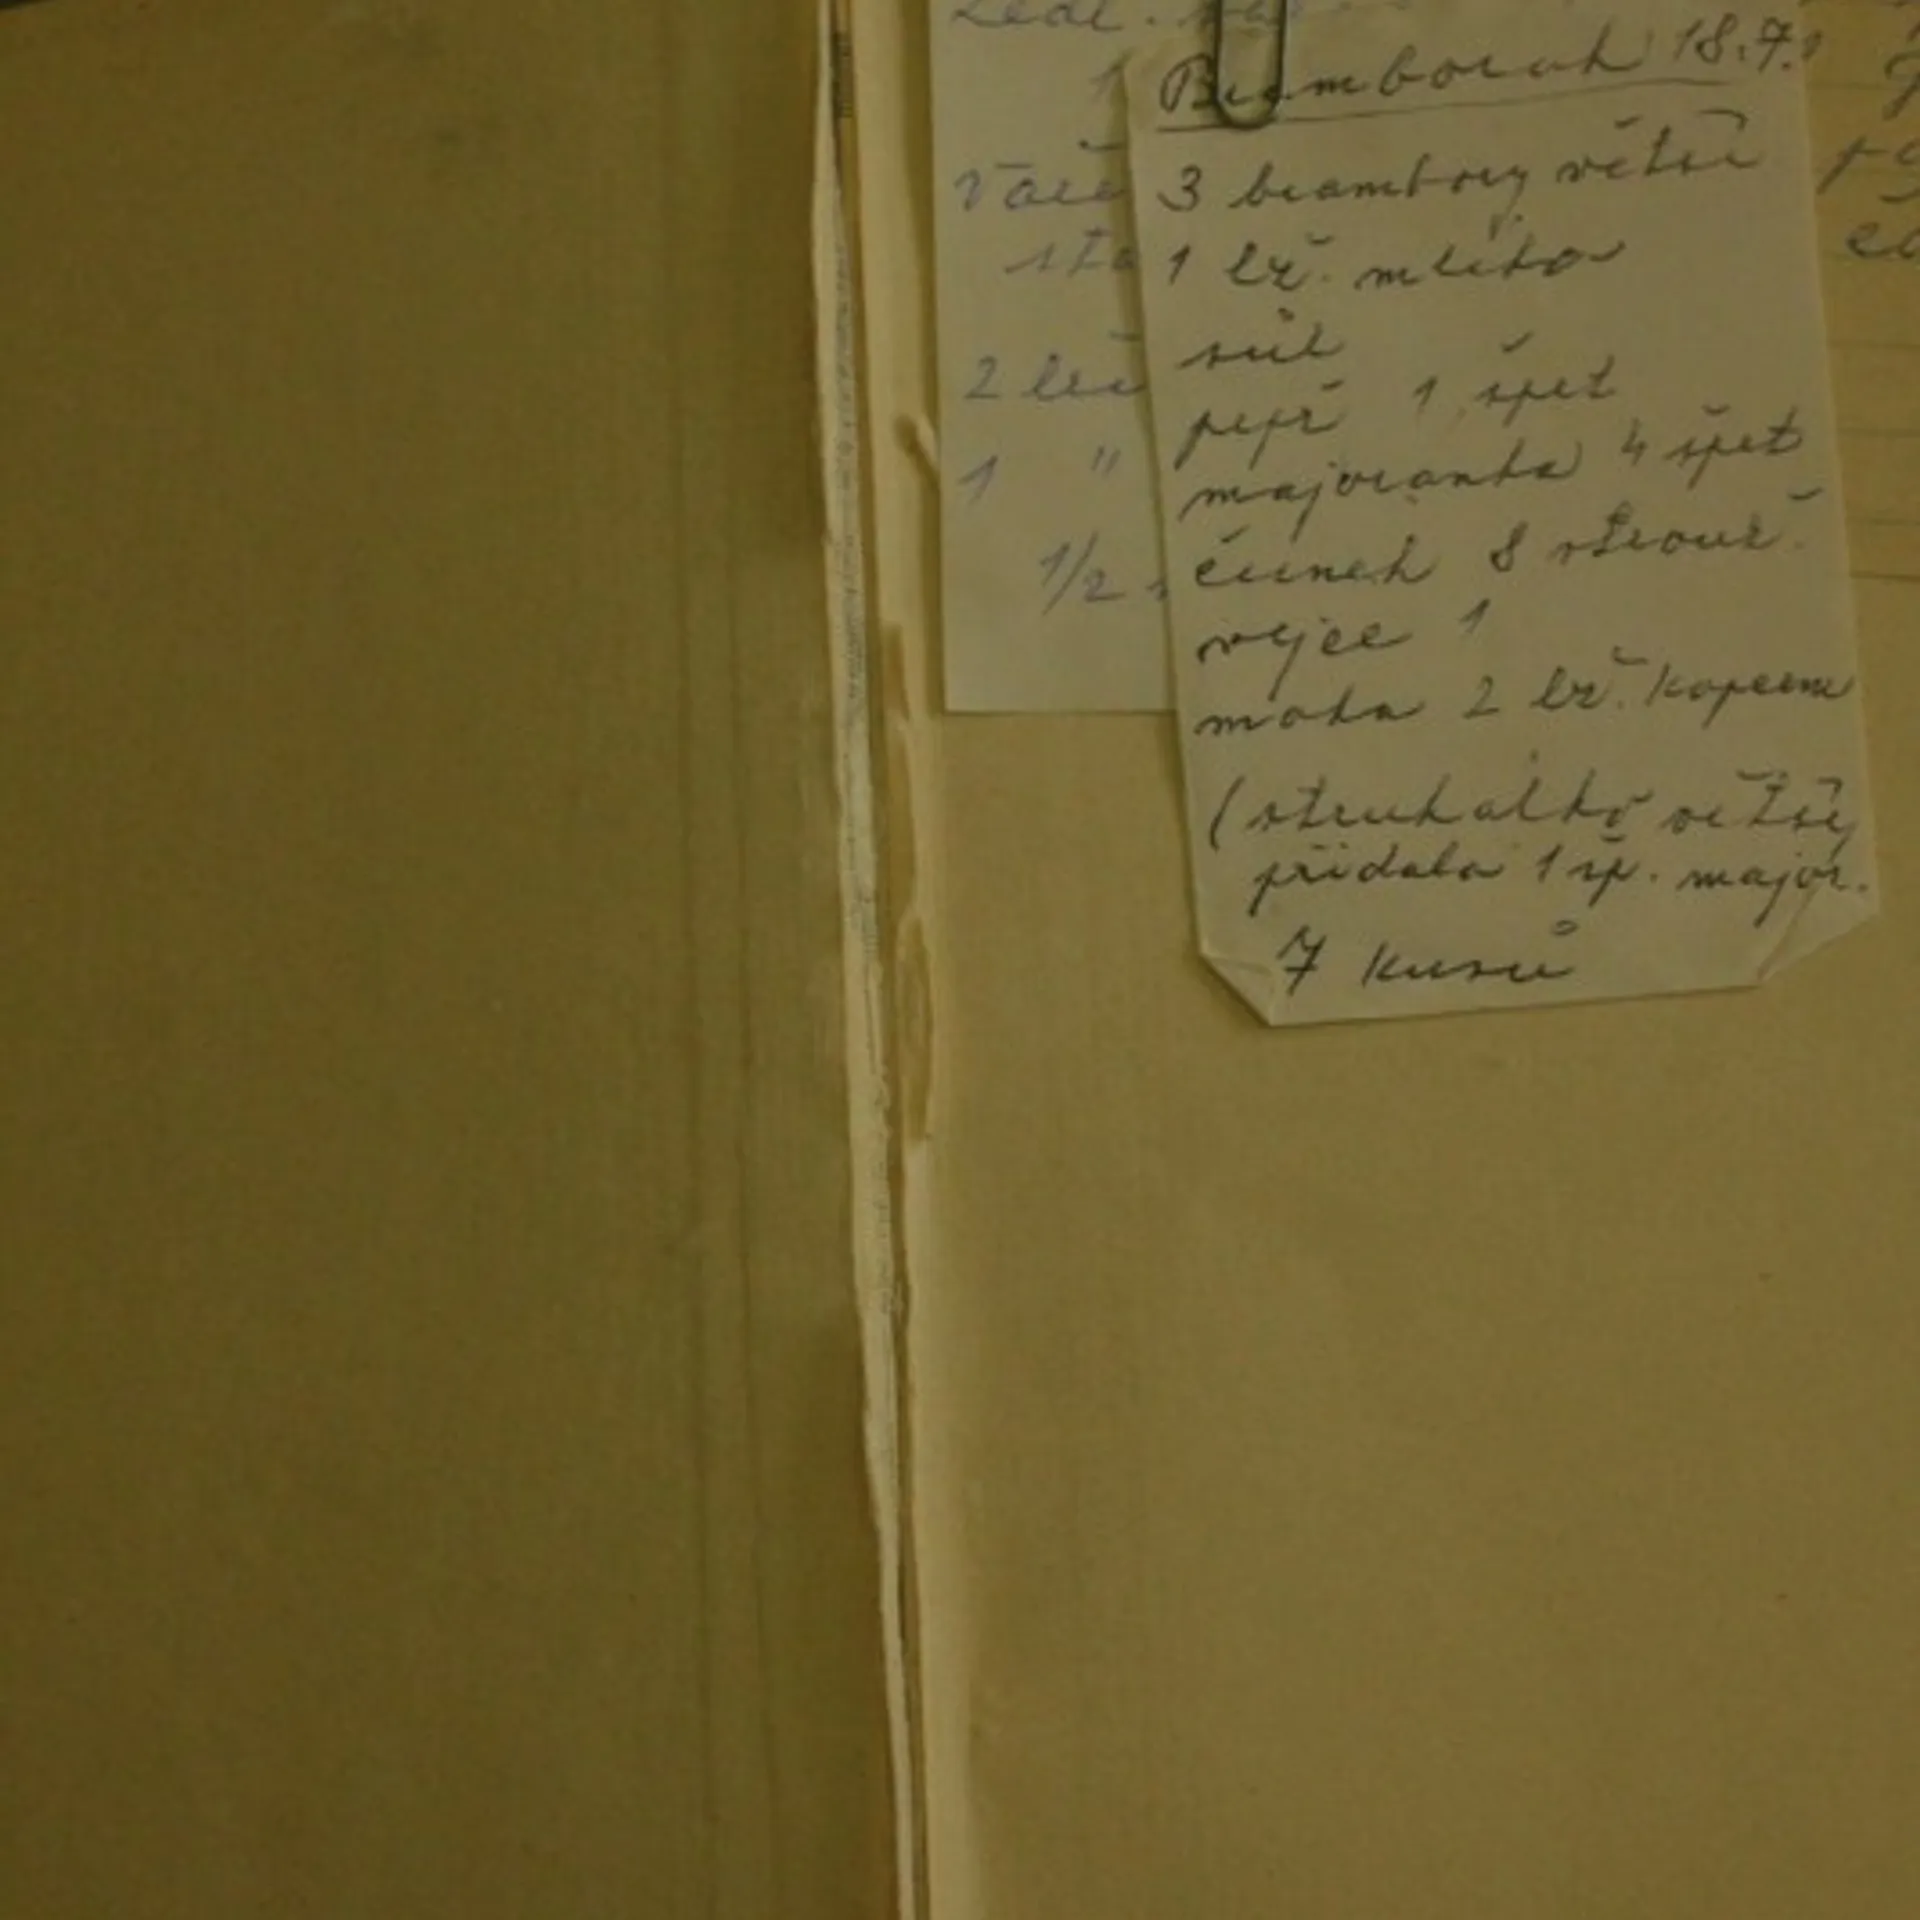 Bramborák 18.7.
3 brambory větší
1 lž. mléka
sůl
pepř 1 špet
majoránka 4 špet
česnek 8 strouž.
vejce 1
mouka 2 lž. kopcem
(struhátko větší
přidala 1 šp. major.
7 kusů
2
1 "
1/2